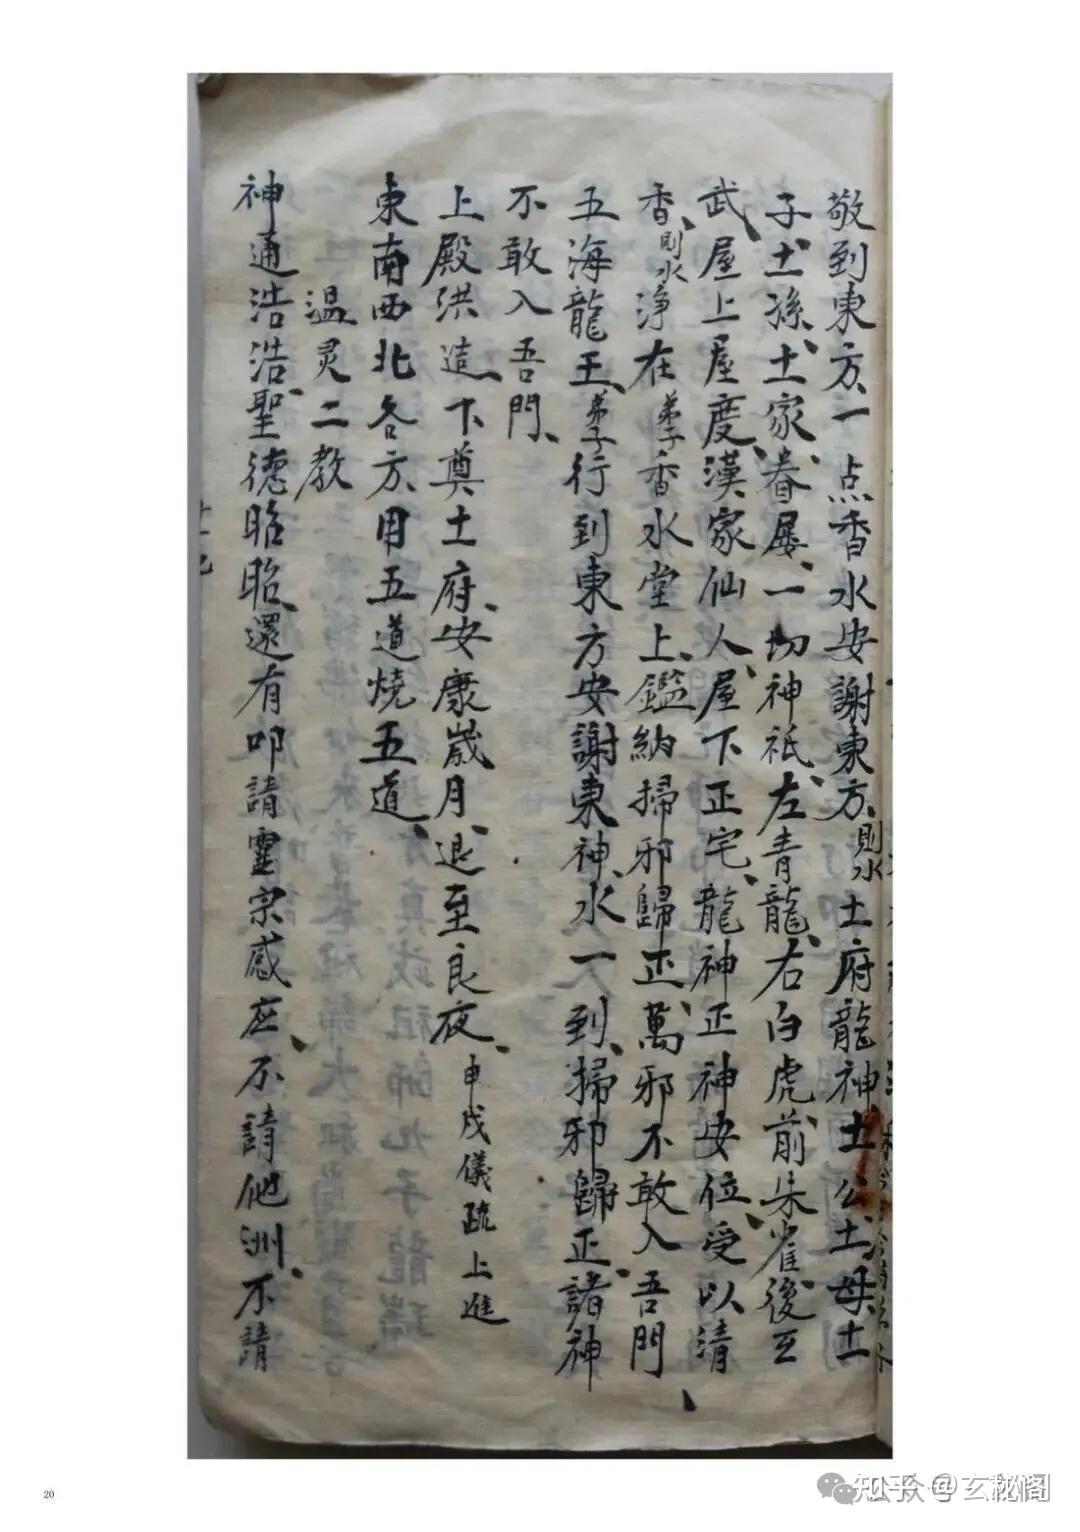 敬到東方、一点香水安謝東方、則水土府龍神土公、土母、土
子、土孫、土家、眷屬、一切神祇、左青龍、右白虎前朱雀後玄
武、屋上屋度、漢家仙人、屋下正宅、龍神正神安位、受以清
香、則水淨在弟子香水堂上、鑑納掃邪歸正、萬邪不敢入吾門、
五海龍王、弟子行到東方安謝東神、水一到、掃邪歸正、諸神
不敢入吾門、
上殿洪造、下奠土府、安康歲月、退至良夜、申戌儀疏上進
東南西北各方、用五道燒五道、
温灵二教
神通浩浩、聖德昭昭、還有叩請靈宗感应、不請他洲、不請
20
知乎 @玄秘阁